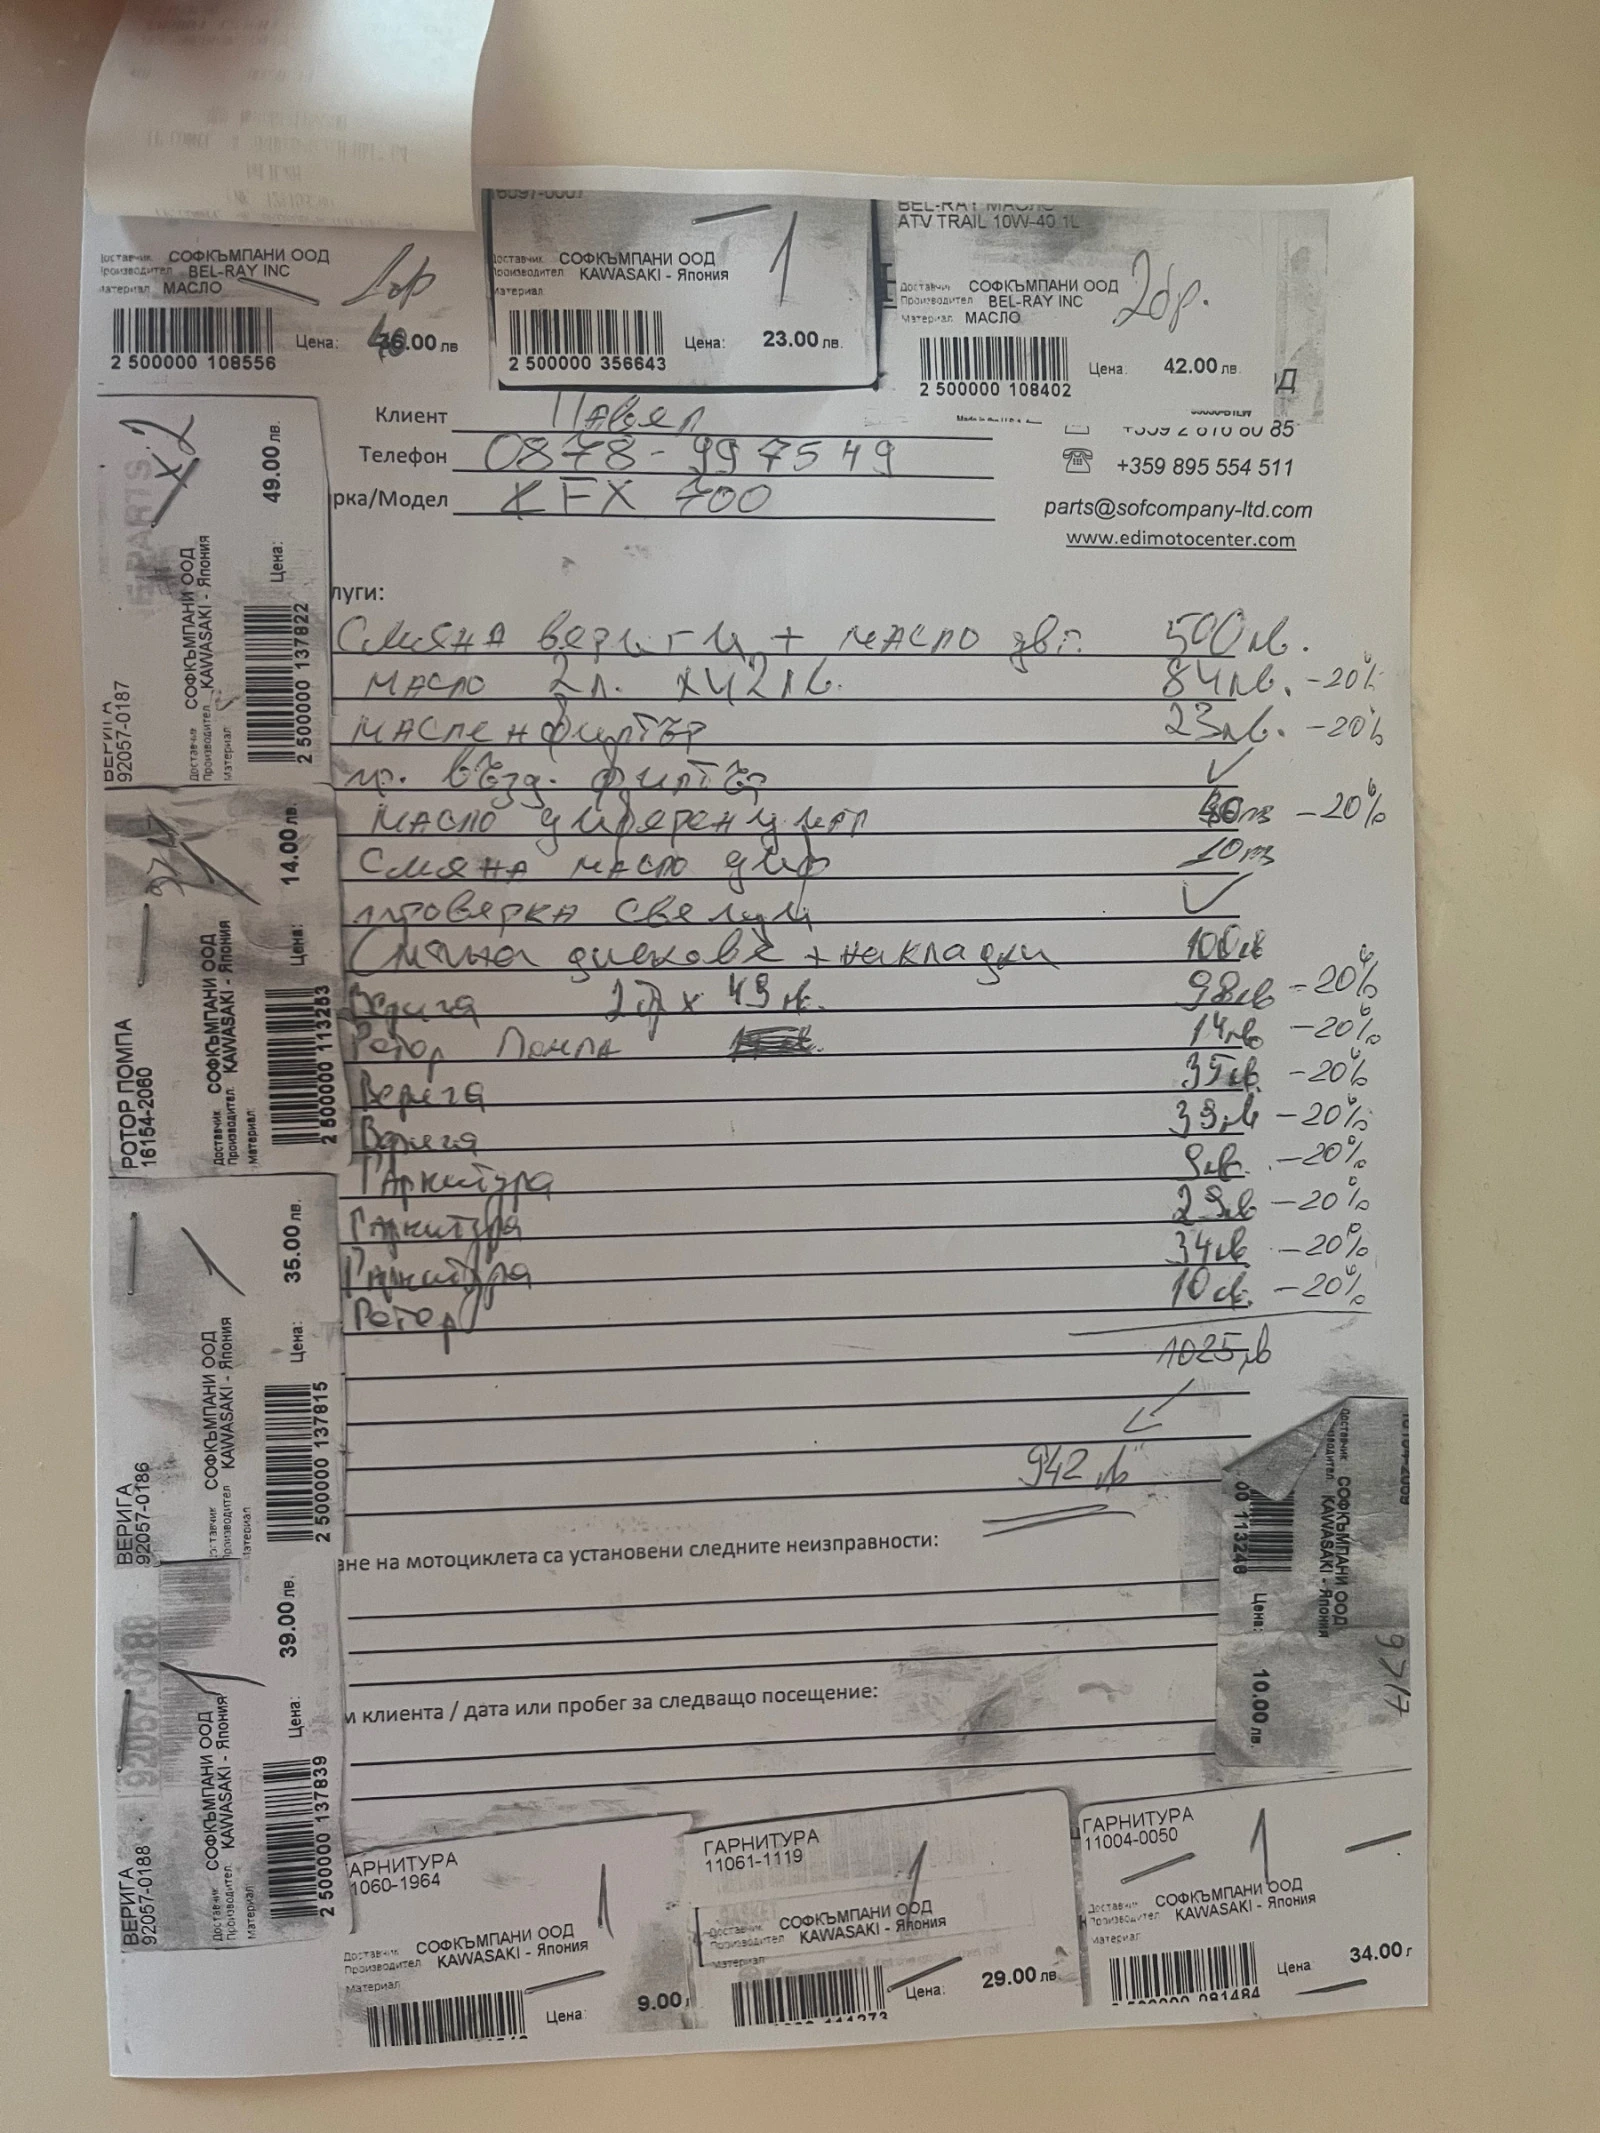 6097-0007
BEL-RAY МАСЛО
ATV TRAIL 10W-40 1L
Доставчик СОФКЪМПАНИ ООД
Производител BEL-RAY INC
Материал МАСЛО
1бр
2 500000 108556
Цена: .00 лв
Доставчик СОФКЪМПАНИ ООД
Производител KAWASAKI - Япония
Материал
1
2 500000 356643
Цена: 23.00 лв.
Доставчик СОФКЪМПАНИ ООД
Производител BEL-RAY INC
Материал МАСЛО
2бр.
2 500000 108402
Цена: 42.00 лв.
Клиент Павел
Телефон 0878-997549
рка/Модел KFX 700
+359 2 870 80 85
+359 895 554 511
parts@sofcompany-ltd.com
www.edimotocenter.com
луги:
Смяна вериги + масло двг. 500лв.
масло 2л. х42лв. 84лв. -20%
маслен филтър 23лв. -20%
пр. възд. филтър ✓
масло диференциал 40лв -20%
Смяна масло диф 10лв
проверка свещи ✓
Смяна дискове + накладки 100лв
Верига 2бр х 49лв. 98лв -20%
Ротор Помпа 14лв -20%
Верига 35лв. -20%
Верига 39лв -20%
Гарнитура 9лв. -20%
Гарнитура 29лв -20%
Гарнитура 34лв -20%
Ротор 10лв. -20%
1025лв
942лв
ане на мотоциклета са установени следните неизправности:
м клиента / дата или пробег за следващо посещение:
ВЕРИГА
92057-0187
x2
E PARTS
Доставчик СОФКЪМПАНИ ООД
Производител KAWASAKI - Япония
Материал
Цена: 49.00 лв.
2 500000 137822
РОТОР ПОМПА
16154-2060
Доставчик СОФКЪМПАНИ ООД
Производител KAWASAKI - Япония
Материал
Цена: 14.00 лв.
2 500000 113263
ВЕРИГА
92057-0186
1
Доставчик СОФКЪМПАНИ ООД
Производител KAWASAKI - Япония
Материал
Цена: 35.00 лв.
2 500000 137815
ВЕРИГА
92057-0188
92057-0188
1
Доставчик СОФКЪМПАНИ ООД
Производител KAWASAKI - Япония
Материал
Цена: 39.00 лв.
2 500000 137839
Доставчик СОФКЪМПАНИ ООД
водител KAWASAKI - Япония
00 113248
Цена: 10.00 лв.
АРНИТУРА
1060-1964
1
Доставчик СОФКЪМПАНИ ООД
Производител KAWASAKI - Япония
Материал
Цена: 9.00
ГАРНИТУРА
11061-1119
1
Доставчик СОФКЪМПАНИ ООД
Производител KAWASAKI - Япония
Материал
Цена: 29.00 лв
ГАРНИТУРА
11004-0050
1
Доставчик СОФКЪМПАНИ ООД
Производител KAWASAKI - Япония
Материал
Цена 34.00